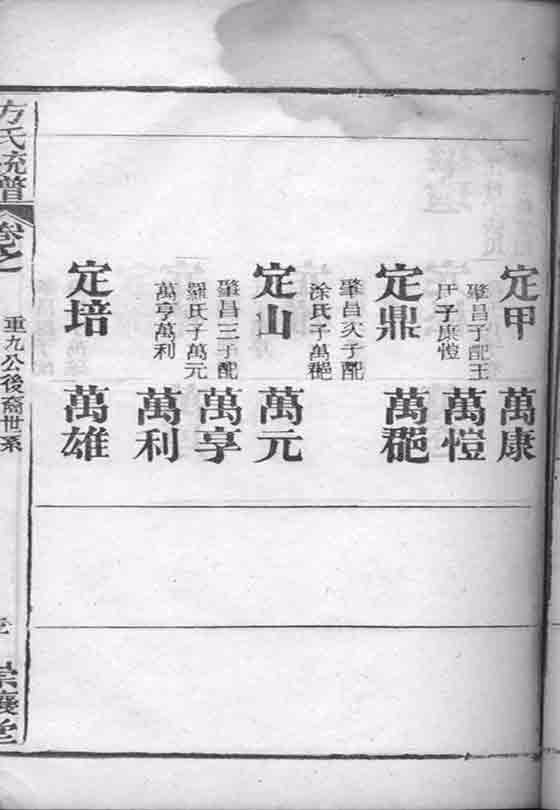 定甲
肇昌子配王
氏子康愷
定鼎
肇昌次子配
涂氏子萬
定山
肇昌三子配
羅氏子萬元
萬亨萬利
定培
萬康
萬愷
萬
萬元
萬亨
萬利
萬雄
方氏統譜
卷之
重九公後裔世系
崇讓堂